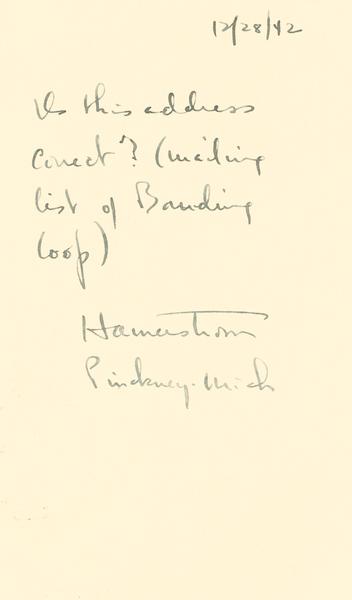 12/28/42
Is this address
correct? (mailing
list of Banding
Coop)
Hamerstrom
Pinckney. Mich